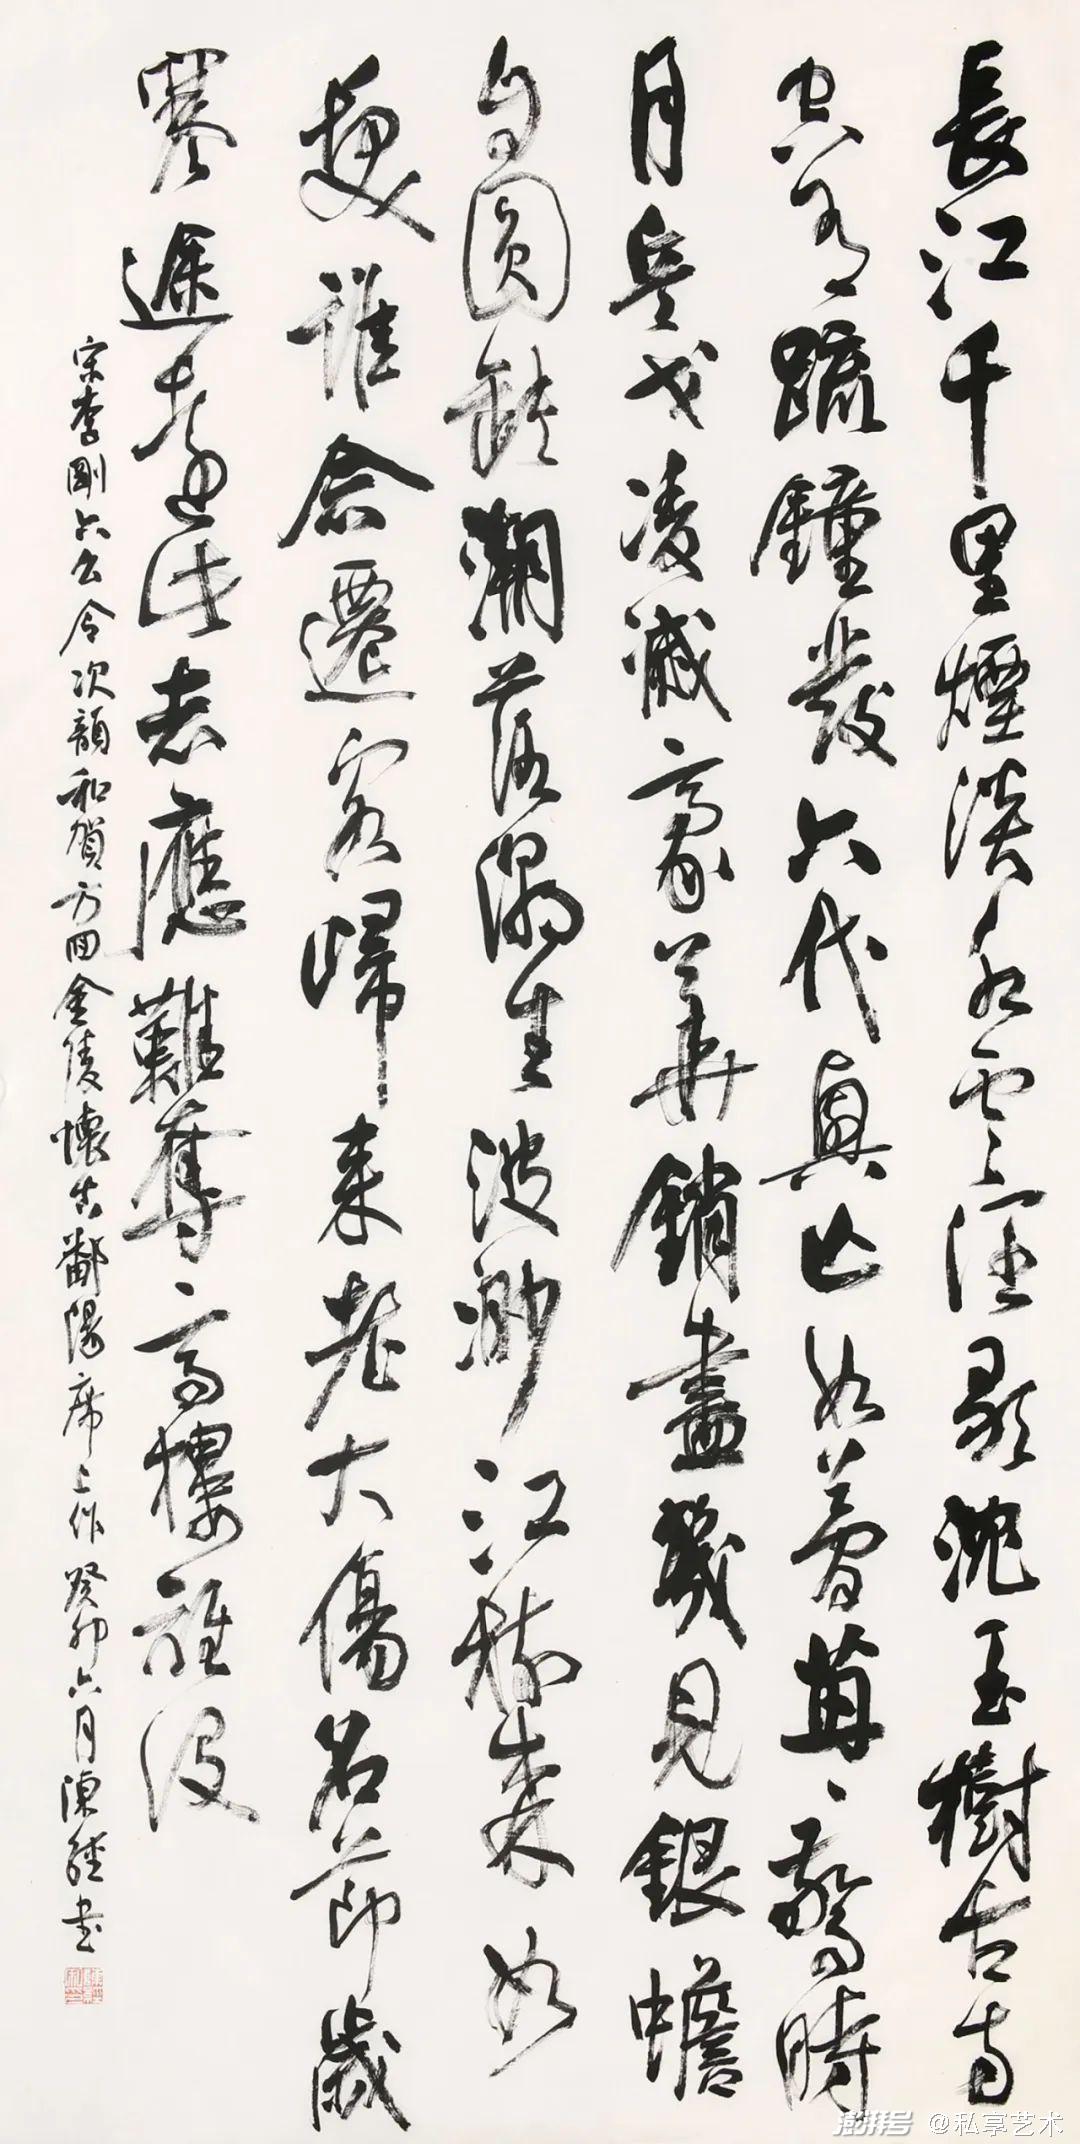 長江千里煙淡水雲濶歌沈玉樹古寺
空有疏鐘發六代興亡如夢苒〻驚時
月兵戈凌滅豪華銷盡幾見銀蟾
自圓缺潮落潮生波渺江樹森如
髮誰念遷客歸來老大傷名節歲
寒途遠此志應難奪高樓誰設
宋李剛六么令次韻和賀方回金陵懷古鄱陽席上作癸卯六月陳經書
澎湃号 @私享艺术